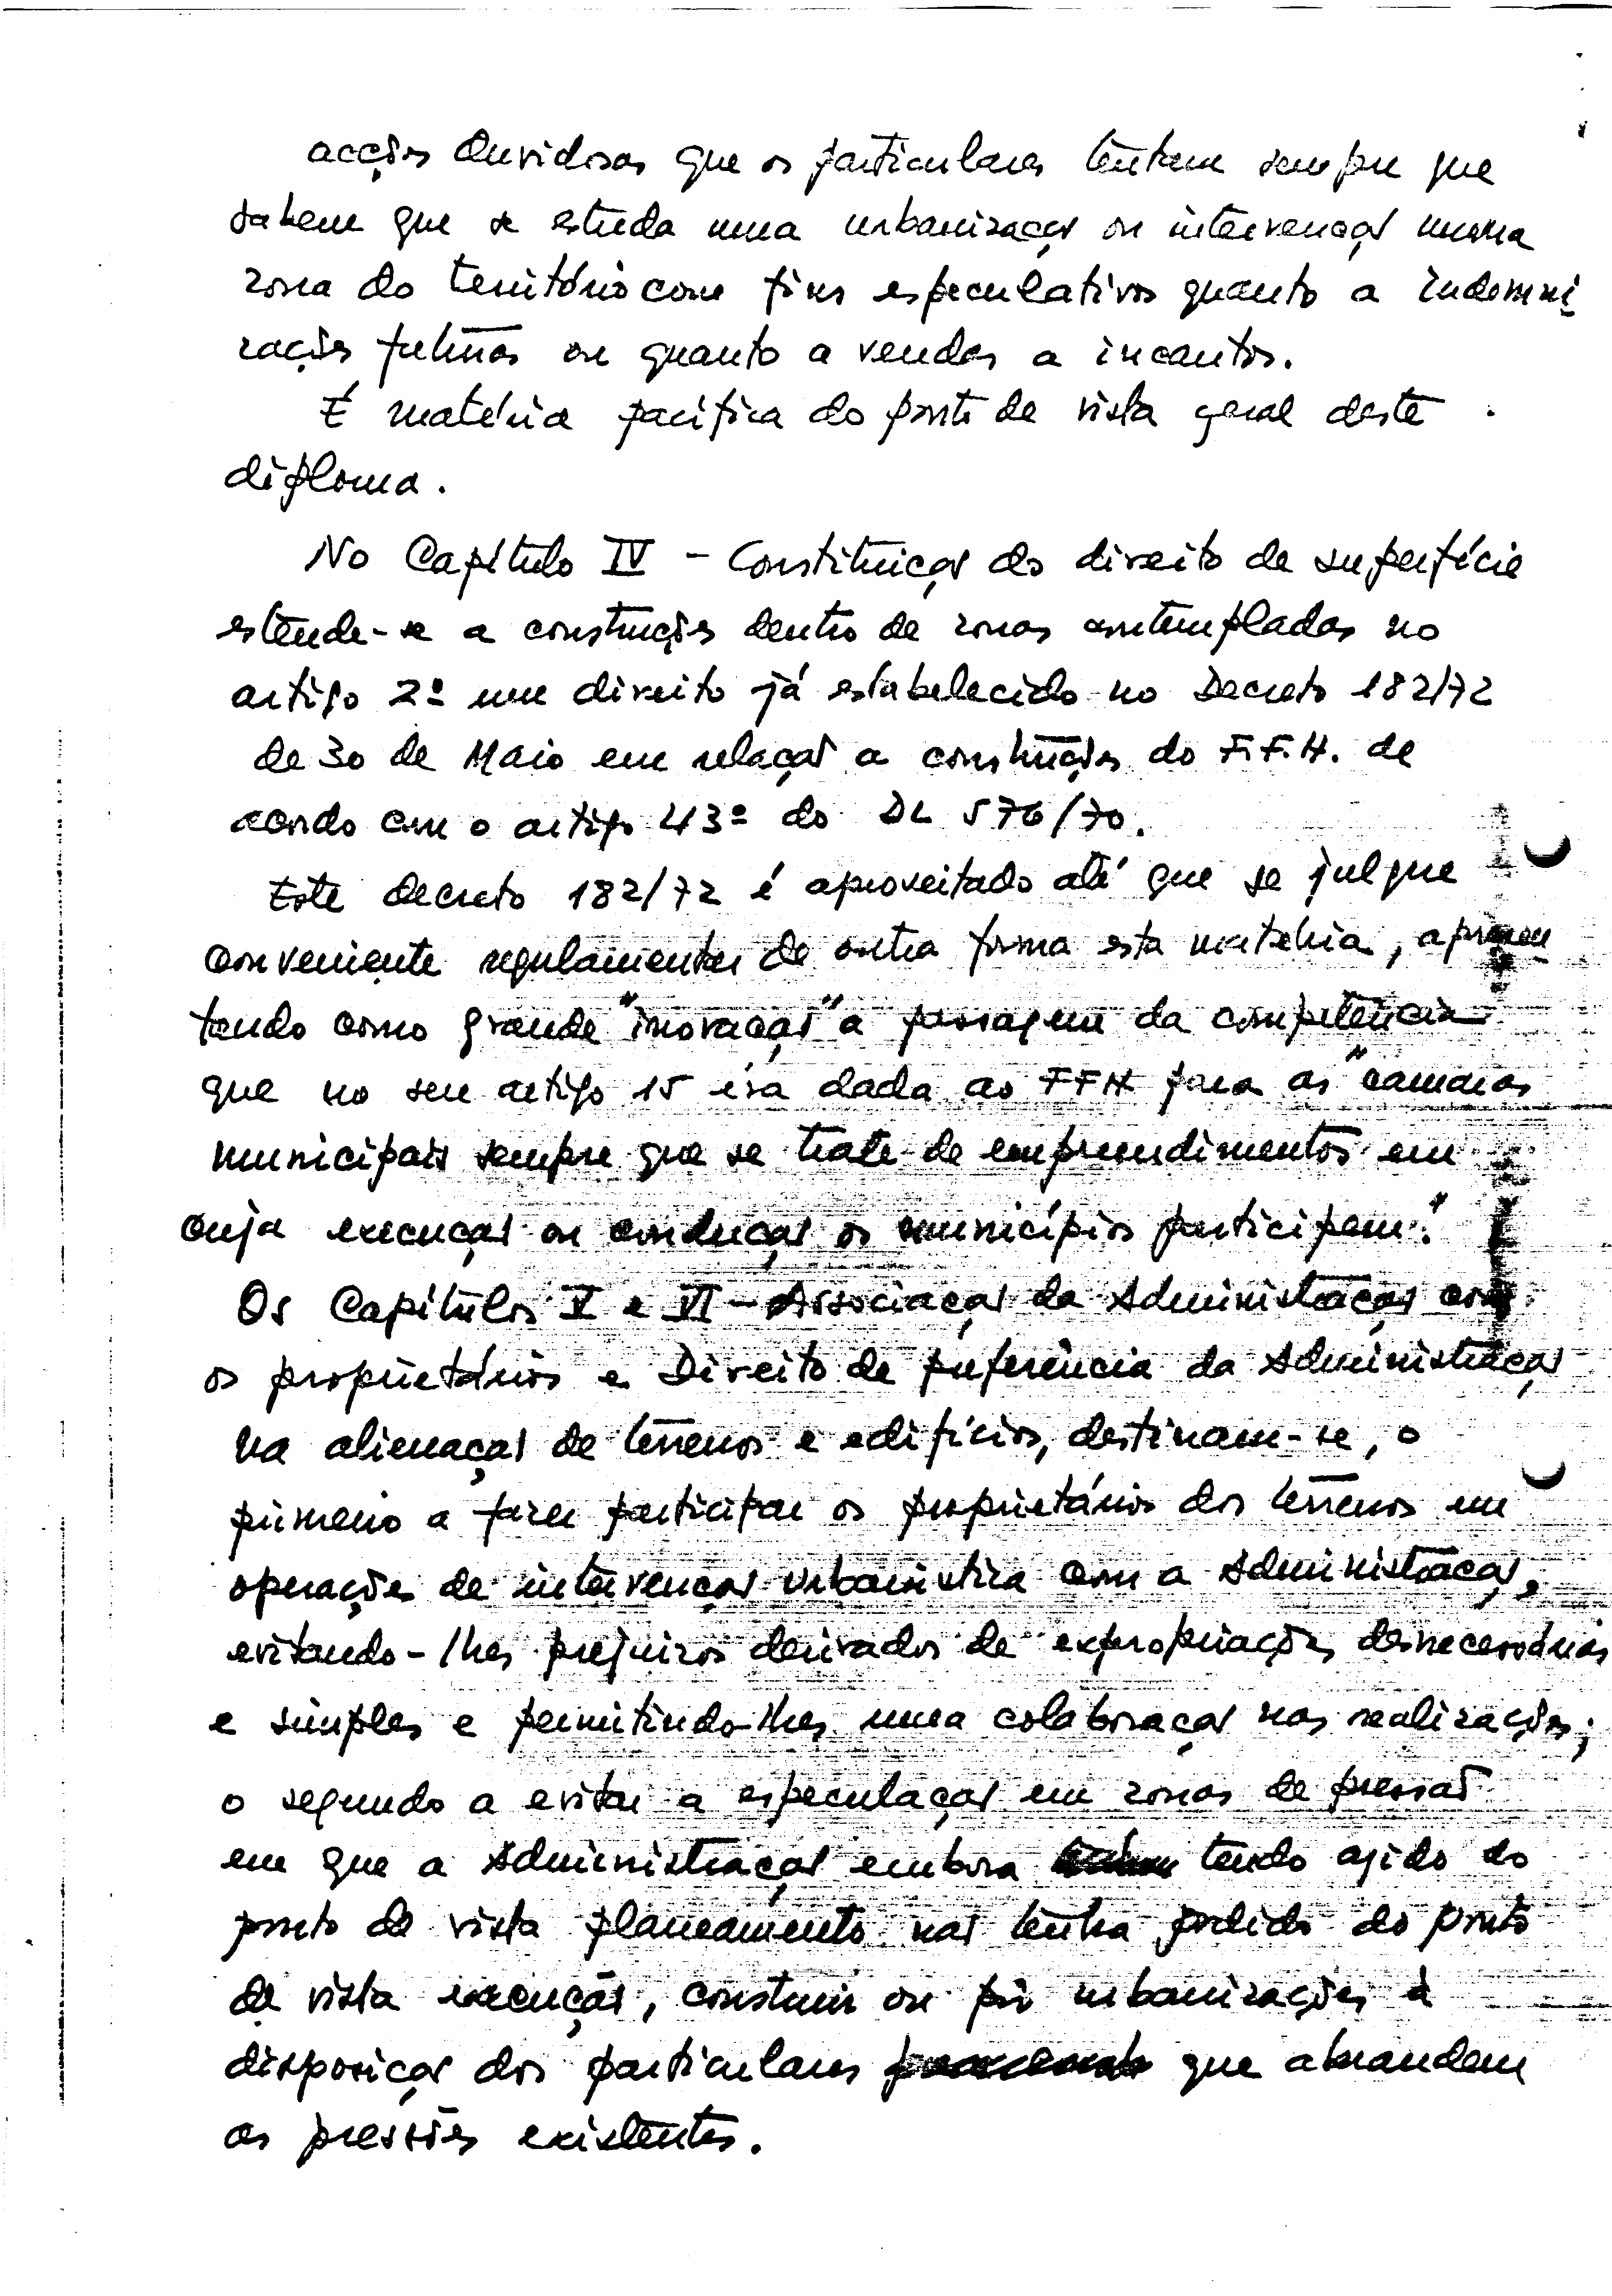 acções duvidosas que os particulares tentam sempre que
sabem que se estuda uma urbanização ou intervenção numa
zona do território com fins especulativos quanto a indemni
zações futuras ou quanto a vendas a incautos.
É matéria pacífica do ponto de vista geral deste
diploma.
No Capítulo IV - Constituição do direito de superfície
estende-se a construções dentro de zonas contempladas no
artigo 2º um direito já estabelecido no Decreto 182/72
de 30 de Maio em relação a construções do F.F.H. de
acordo com o artigo 43º do DL 576/70.
Este decreto 182/72 é aproveitado até que se julgue
conveniente regulamentar de outra forma esta matéria, apresen
tando como grande "inovação" a passagem da competência
que no seu artigo 15 era dada ao FFH para as "camaras
municipais sempre que se trate de empreendimentos em
cuja execução ou condução os municípios participem."
Os Capítulos V e VI - Associação da Administração com
os proprietários e Direito de preferência da Administração
na alienação de terrenos e edifícios, destinam-se, o
primeiro a fazer participar os proprietários dos terrenos em
operações de intervenção urbanística com a Administração,
evitando-lhes prejuizos derivados de expropriações desnecessárias
e simples e permitindo-lhes uma colaboração nas realizações;
o segundo a evitar a especulação em zonas de pressão
em que a Administração embora tendo agido do
ponto de vista planeamento não tenha podido do ponto
de vista execução, construir ou pôr urbanizações à
disposição dos particulares que abrandem
as pressões existentes.